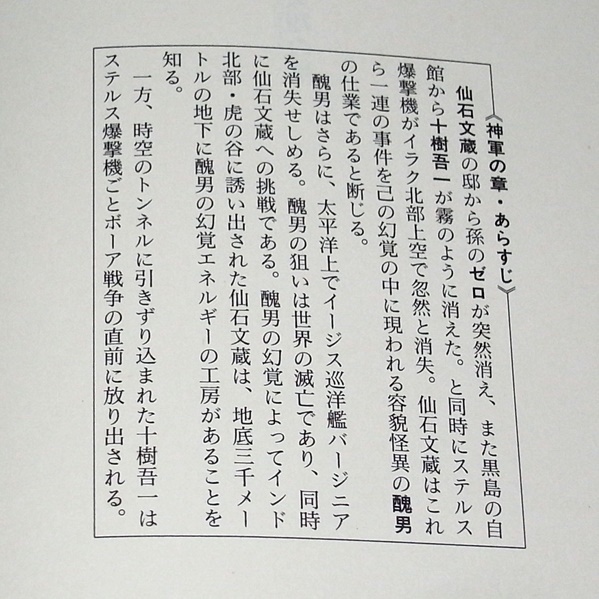 《神軍の章・あらすじ》
仙石文蔵の邸から孫のゼロが突然消え、また黒島の自
館から十樹吾一が霧のように消えた。と同時にステルス
爆撃機がイラク北部上空で忽然と消失。仙石文蔵はこれ
ら一連の事件を己の幻覚の中に現われる容貌怪異の醜男
の仕業であると断じる。
醜男はさらに、太平洋上でイージス巡洋艦バージニア
を消失せしめる。醜男の狙いは世界の滅亡であり、同時
に仙石文蔵への挑戦である。醜男の幻覚によってインド
北部・虎の谷に誘い出された仙石文蔵は、地底三千メー
トルの地下に醜男の幻覚エネルギーの工房があることを
知る。
一方、時空のトンネルに引きずり込まれた十樹吾一は
ステルス爆撃機ごとボーア戦争の直前に放り出される。